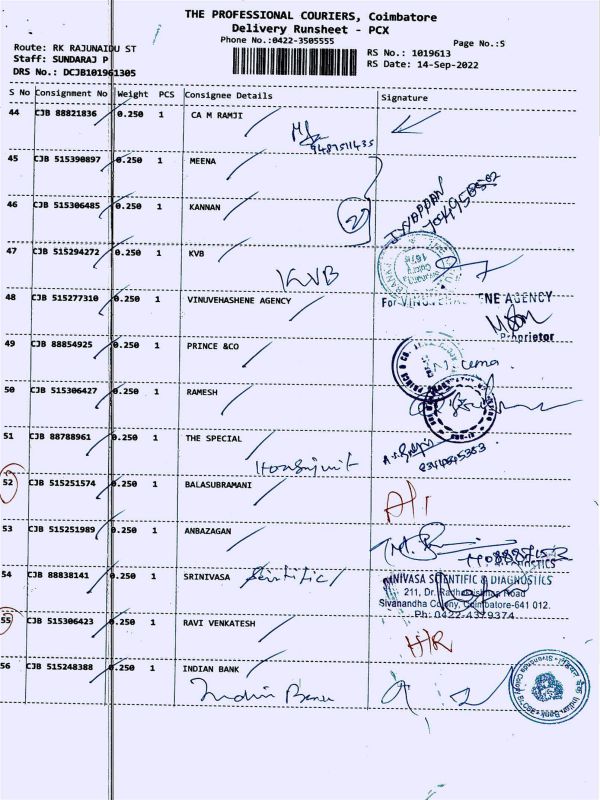 THE PROFESSIONAL COURIERS, Coimbatore
Delivery Runsheet - PCX
Phone No.:0422-3505555
Page No.:5
Route: RK RAJUNAIDU ST
Staff: SUNDARAJ P
DRS No.: DCJB101961305
RS No.: 1019613
RS Date: 14-Sep-2022
S No Consignment No Weight PCS Consignee Details Signature
44 CJB 88821836 0.250 1 CA M RAMJI
9487511435
45 CJB 515390897 0.250 1 MEENA
46 CJB 515306485 0.250 1 KANNAN
20
47 CJB 515294272 0.250 1 KVB
KVB
48 CJB 515277310 0.250 1 VINUVEHASHENE AGENCY
For VINUVEHASHENE AGENCY
Proprietor
49 CJB 88854925 0.250 1 PRINCE &CO
50 CJB 515306427 0.250 1 RAMESH
51 CJB 88788961 0.250 1 THE SPECIAL
52 CJB 515251574 0.250 1 BALASUBRAMANI
53 CJB 515251989 0.250 1 ANBAZAGAN
54 CJB 88838141 0.250 1 SRINIVASA
SRINIVASA SCIENTIFIC & DIAGNOSTICS
211, Dr. Radhakrishnan Road
Sivanandha Colony, Coimbatore-641 012.
Ph: 0422-4379374
55 CJB 515306423 0.250 1 RAVI VENKATESH
H/R
56 CJB 515248388 0.250 1 INDIAN BANK
Indian Bank